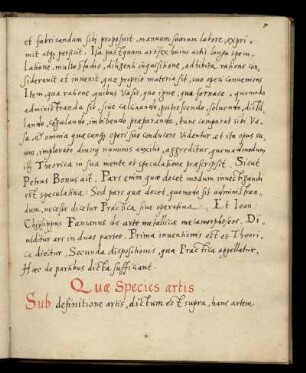 et fabricandam sibi proposuit, manuum suarum labore, expri-
mit atq; perficit. Ita postquam artifex huius artis longa specu-
latione, multo studio, diligenti inquisitione, adhibita, ratione con-
sideravit et invenit, quæ propria materia sit, suo operi conveniens
Item qua ratione, quibus Vasis, quo igne, qua fornace, quomodo
administranda sit, sive calcinando, putrefaciendo, solvendo, distil-
lando, coagulando, imbibendo præparando, tunc comparat sibi Va-
sa, et omnia quæcunq; operi sue conducere videntur, et ita opus su-
um, implorato divini numinis auxilio, aggreditur, quemadmodum
illi Theorica in sua mente et speculatione præscripsit. Sicut
Petrus Bonus ait. Pars enim quæ docet modum investigandi
est speculativa. Sed pars quæ docet, quomodo sit administran-
dum, necesse dicetur Practica sive operativa. Et Ioan
Chrysippus Fanianus de arte metallicæ metamorphoseos. Di-
viditur ars in duas partes. Prima inventionis est et Theori-
ca dicitur. Secunda dispositionis, quæ Practica appellatur.
Hæc de partibus dicta sufficiant
Quæ Species artis
Sub definitione artis, dictum est supra, hanc artem